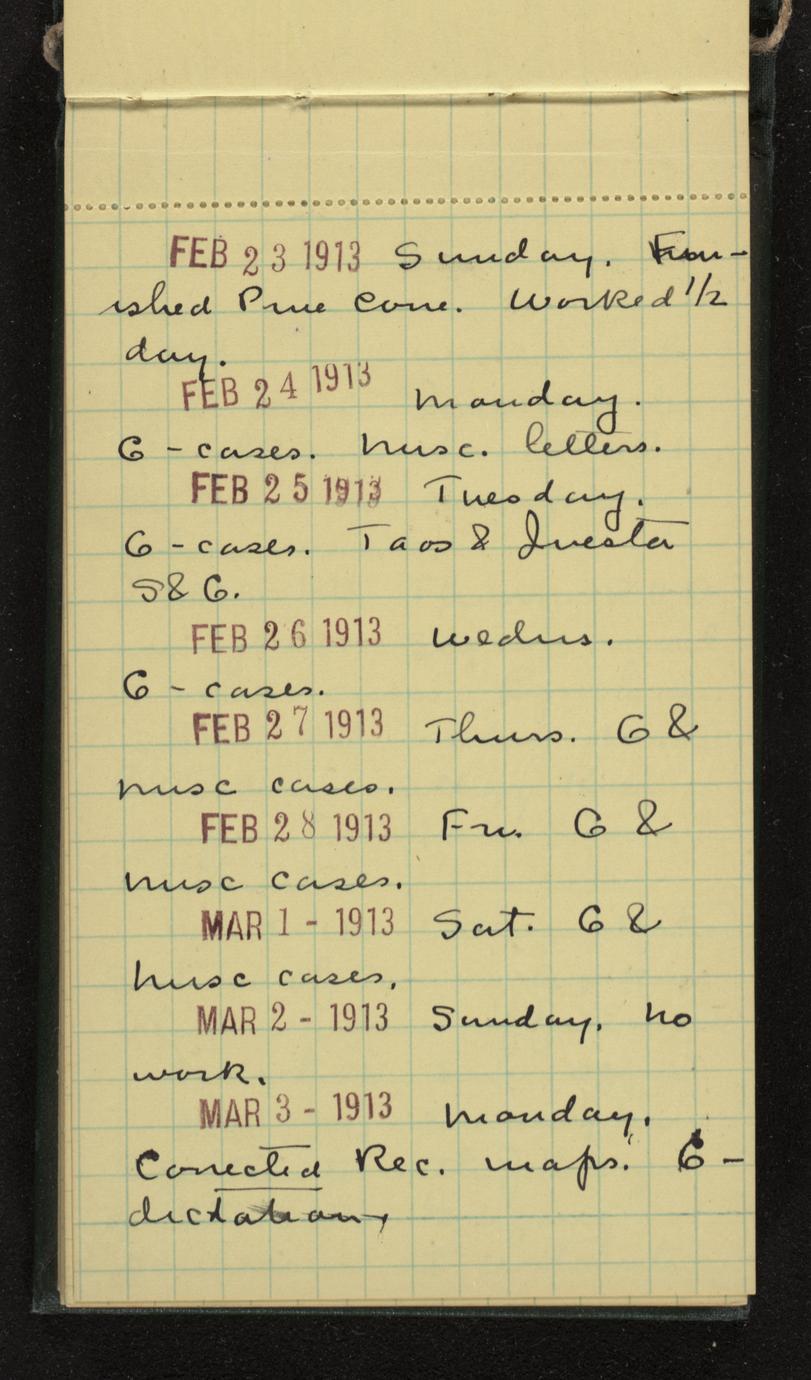 FEB 23 1913 Sunday. Fin-
ished Pine Cone. Worked 1/2
day.
FEB 24 1913 Monday.
G - cases. Misc. letters.
FEB 25 1913 Tuesday.
G - cases. Taos &
S & G.
FEB 26 1913 Wednes.
G - cases.
FEB 27 1913 Thurs. G &
misc cases.
FEB 28 1913 Fri. G &
misc cases.
MAR 1 - 1913 Sat. G &
misc cases.
MAR 2 - 1913 Sunday. No
work.
MAR 3 - 1913 Monday.
Corrected Rec. maps. G -
dictation,